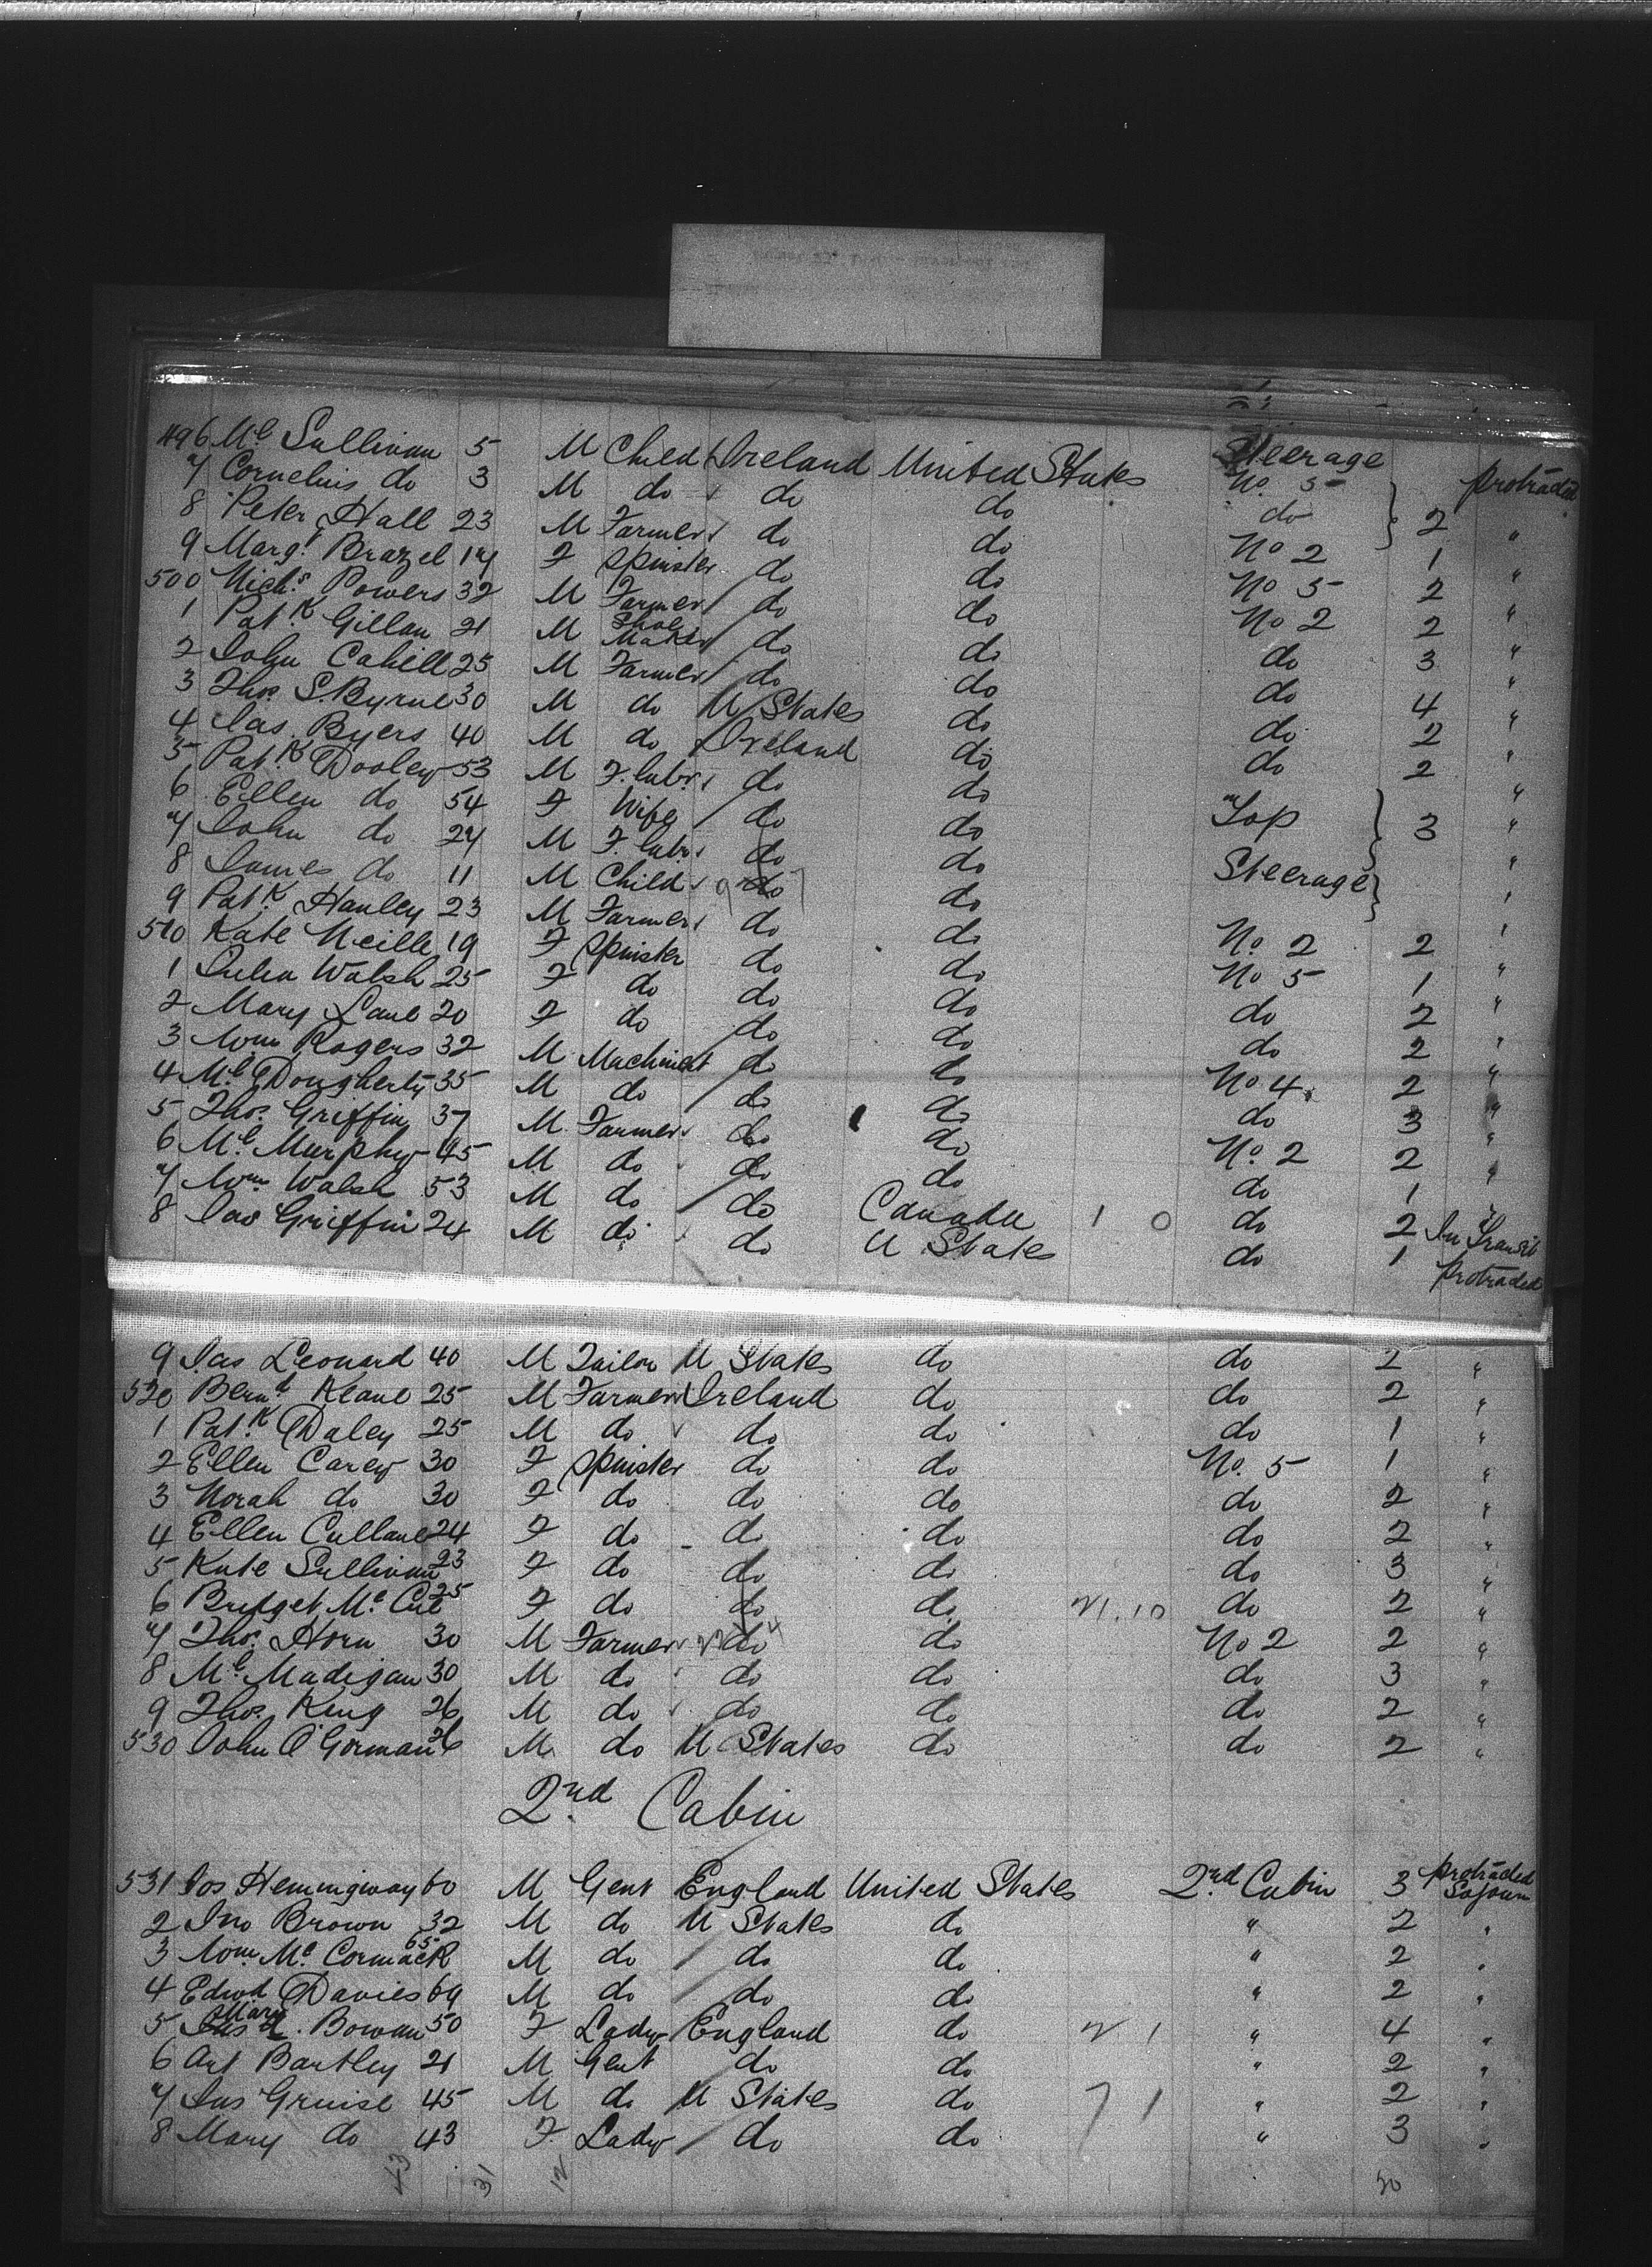 496 Ml Sullivan 5 M Child Ireland United States Steerage No. 5 protracted
7 Cornelius do 3 M do do do do 2 "
8 Peter Hall 23 M Farmer do do No 2 1 "
9 Margt Brazel 17 F Spinster do do No 5 2 "
500 Nichs Powers 32 M Farmer do do No 2 2 "
1 Patk Gillan 21 M Shoe Maker do do do 3 "
2 John Cahill 25 M Farmer do do do 4 "
3 Thos S. Byrne 30 M do U States do do 2 "
4 Jas Byers 40 M do Ireland do do 2 "
5 Patk Dooley 53 M F. labr do do Top Steerage 3 "
6 Ellen do 54 F Wife do do "
7 John do 27 M F. labr do do "
8 James do 11 M Child do do "
9 Patk Hanley 23 M Farmer do do No. 2 2 "
510 Kate Neille 19 F Spinster do do No 5 1 "
1 Julia Walsh 25 F do do do do 2 "
2 Mary Lane 20 F do do do do 2 "
3 Wm Rogers 32 M Machinist do do No 4 2 "
4 Ml Dougherty 35 M do do do do 3 "
5 Thos. Griffin 37 M Farmer do do No. 2 2 "
6 Ml Murphy 45 M do do do do 1 "
7 Wm Walsh 53 M do do Canada 1 0 do 2 In Transit
8 Jas Griffin 24 M do do U States do 1 protracted
9 Jas Leonard 40 M Tailor U States do do 2 "
520 Bernd Keane 25 M Farmer Ireland do do 2 "
1 Patk Daley 25 M do do do do 1 "
2 Ellen Carey 30 F Spinster do do No. 5 1 "
3 Norah do 30 F do do do do 2 "
4 Ellen Cullane 24 F do do do do 2 "
5 Kate Sullivan 23 F do do do do 3 "
6 Bridget Mc Cue 25 F do do do do 2 "
7 Thos. Horn 30 M Farmer do do No 2 2 "
8 Ml Madigan 30 M do do do do 3 "
9 Thos. King 26 M do do do do 2 "
530 John O'Gorman 26 M do U States do do 2 "
2nd Cabin
531 Jos Hemingway 60 M Gent England United States 2nd Cabin 3 protracted Sojourn
2 Jno Brown 32 M do U States do " 2 "
3 Wm. Mc Cormack 65 M do do do " 2 "
4 Edwd Davies 69 M do do do " 2 "
5 Mary Bowan 50 F Lady England do " 4 "
6 Art Bartley 21 M Gent do do " 2 "
7 Jas Gruise 45 M do U States do 7 1 " 2 "
8 Mary do 43 F Lady do do " 3 "
43 31 12 50